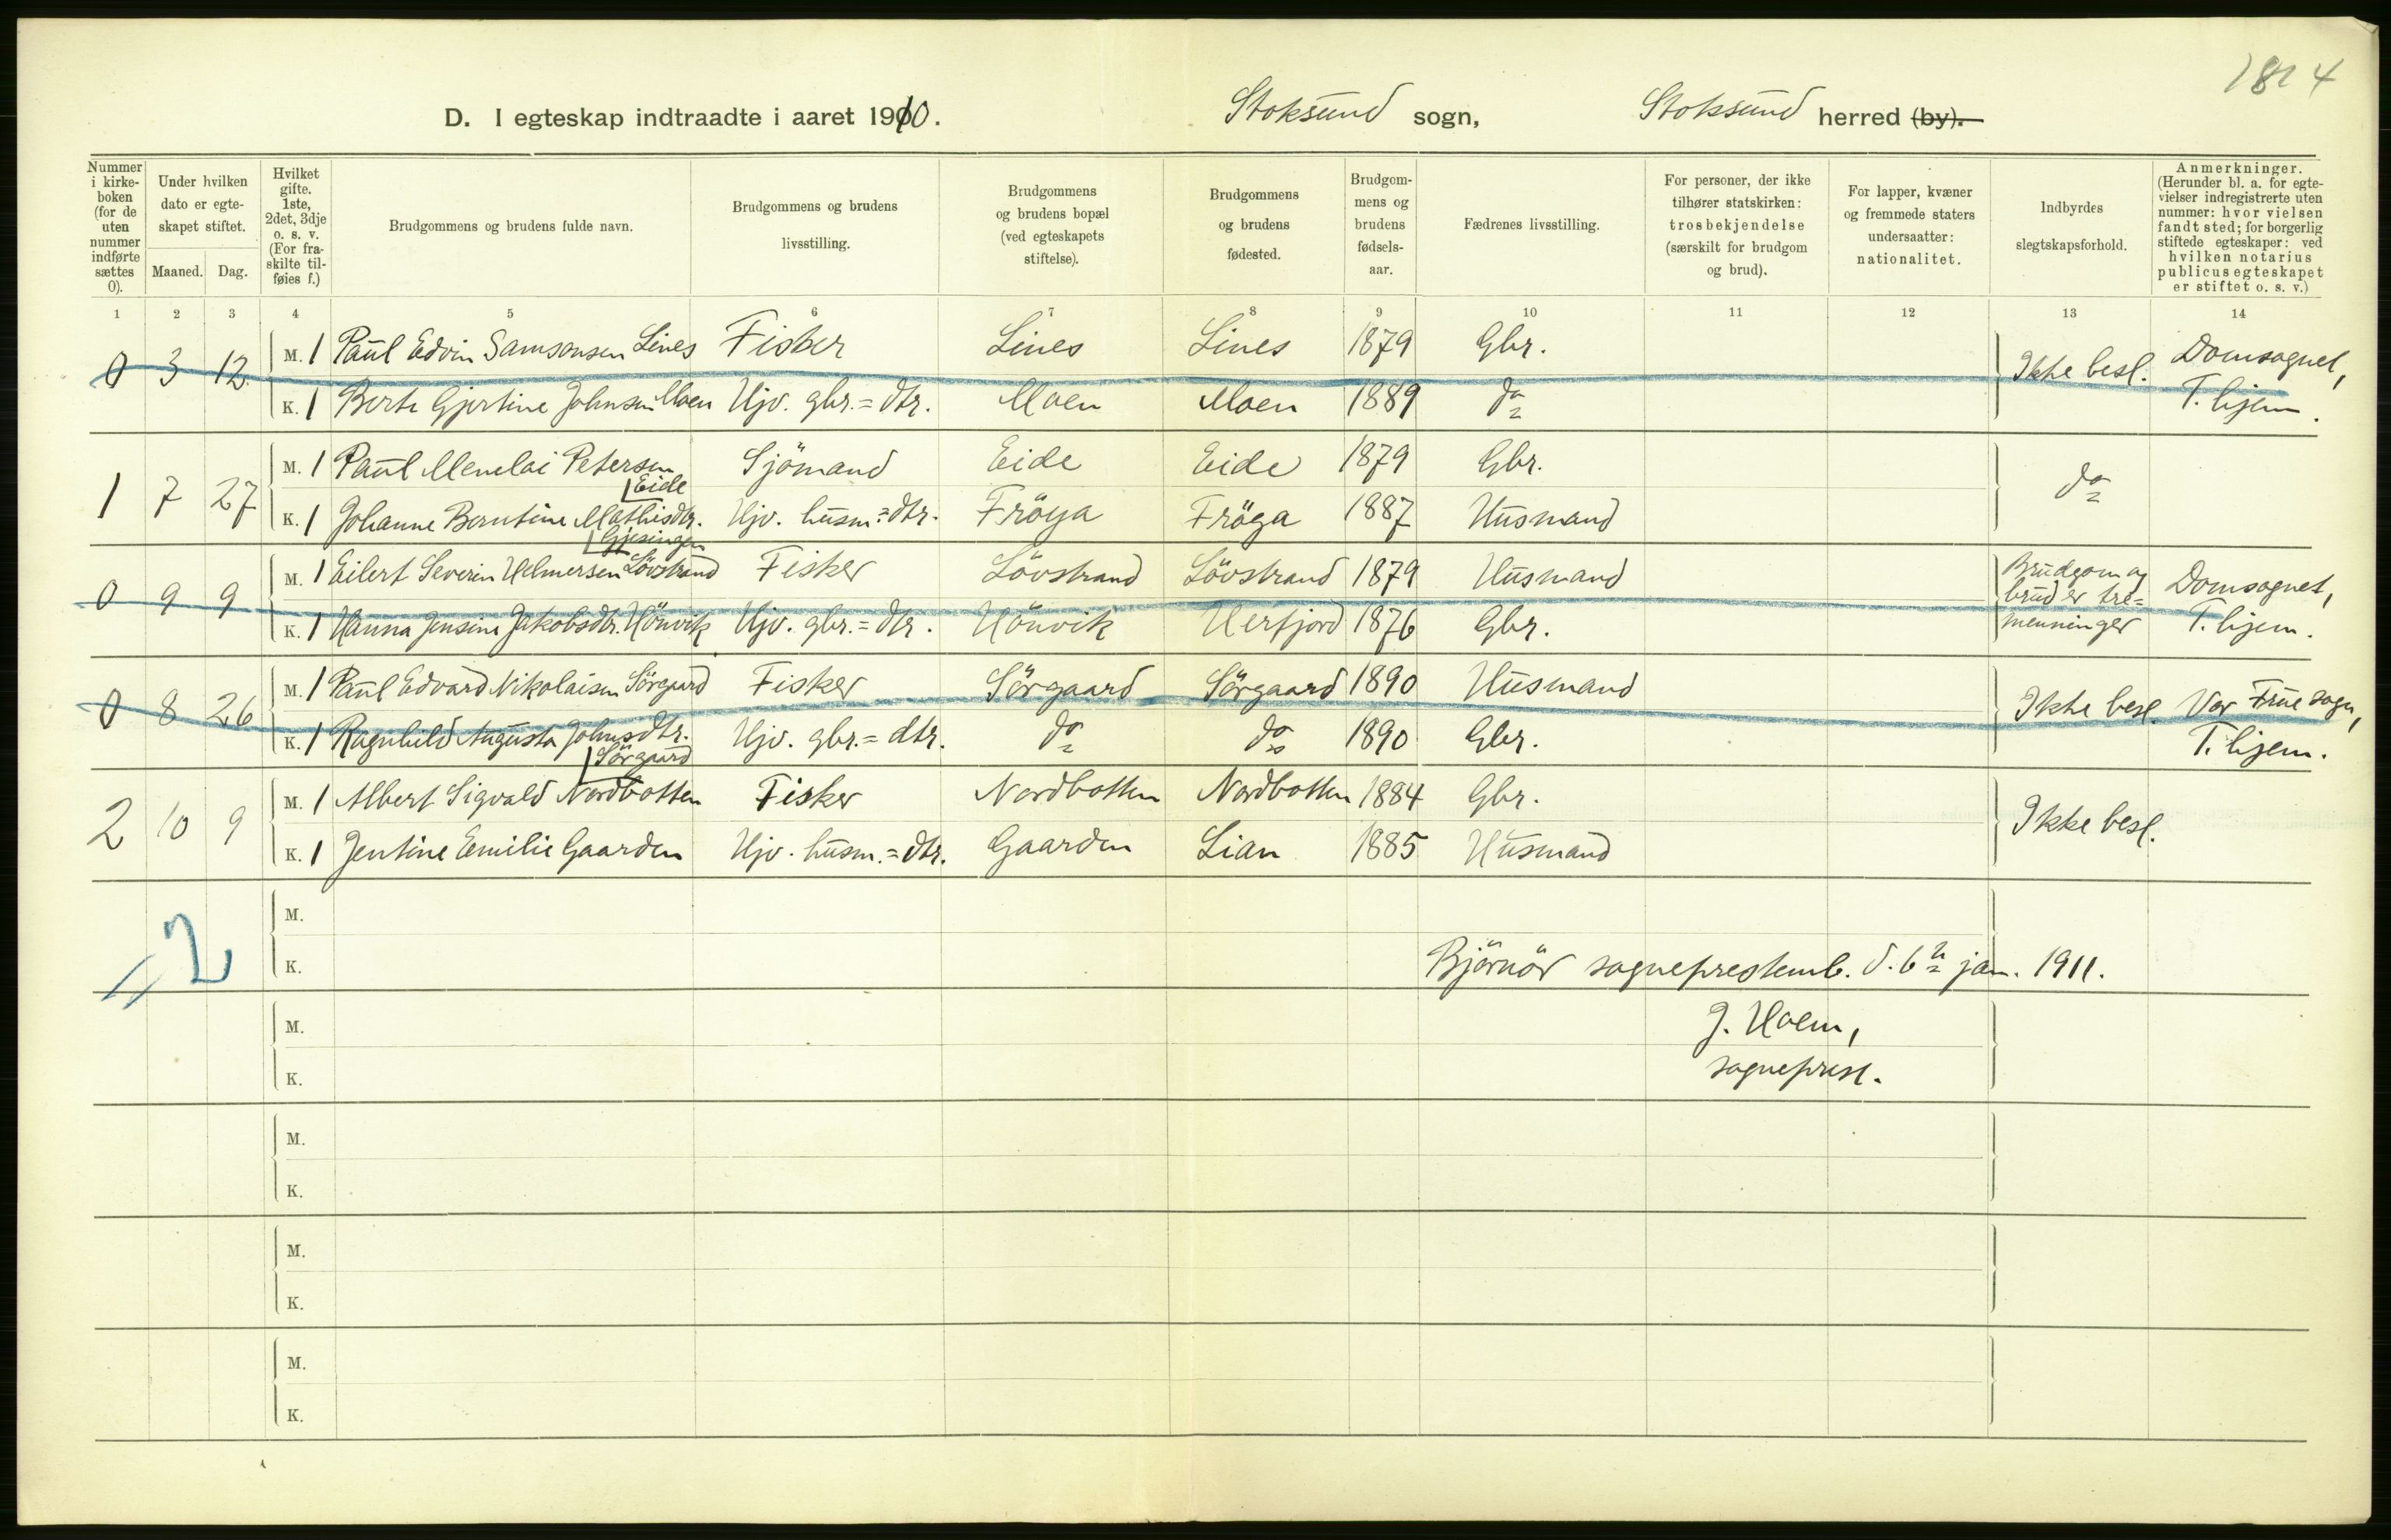 1814
D. I egteskap indtraadte i aaret 1910. Stoksund sogn, Stoksund herred (by).
Nummer i kirke-boken (for de uten nummer indførte sættes 0).
Under hvilken dato er egte-skapet stiftet.
Maaned. Dag.
Hvilket gifte. 1ste, 2det, 3dje o. s. v. (For fra-skilte til-føies f.)
Brudgommens og brudens fulde navn.
Brudgommens og brudens livsstilling.
Brudgommens og brudens bopæl (ved egteskapets stiftelse).
Brudgommens og brudens fødested.
Brudgom-mens og brudens fødsels-aar.
Fædrenes livsstilling.
For personer, der ikke tilhører statskirken: trosbekjendelse (særskilt for brudgom og brud).
For lapper, kvæner og fremmede staters undersaatter: nationalitet.
Indbyrdes slegtskapsforhold.
Anmerkninger. (Herunder bl. a. for egte-vielser indregistrerte uten nummer: hvor vielsen fandt sted; for borgerlig stiftede egteskaper: ved hvilken notarius publicus egteskapet er stiftet o. s. v.)
1 2 3 4 5 6 7 8 9 10 11 12 13 14
0 3 12 M. 1 Paul Edvin Samsonsen Lines Fisker Lines Lines 1879 Gbr. Ikke besl. Domsognet, T.hjem.
K. 1 Berte Gjertine Johnsen Moen Hjv. gbr.=dtr. Moen Moen 1889 do
1 7 27 M. 1 Paul Menelai Petersen Eide Sjömand Eide Eide 1879 Gbr. do
K. 1 Johanne Berntine Mathisdtr. Gjesingen Hjv. husm.=dtr. Fröya Fröya 1887 Husmand
0 9 9 M. 1 Eilert Severin Helmersen Lövstrand Fisker Lövstrand Lövstrand 1879 Husmand Brudgom og brud er tre=menninger Domsognet, T.hjem.
K. 1 Hanna Jensine Jakobsdtr. Hönvik Hjv. gbr.=dtr. Hönvik Herfjord 1876 Gbr.
0 8 26 M. 1 Paul Edvard Nikolaisen Sörgaard Fisker Sörgaard Sörgaard 1890 Husmand Ikke besl. Vor Frue sogn, T.hjem.
K. 1 Ragnhild Augusta Johnsdtr. Sörgaard Hjv. gbr.=dtr. do do 1890 Gbr.
2 10 9 M. 1 Albert Sigvald Nordbotten Fisker Nordbotten Nordbotten 1884 Gbr. Ikke besl.
K. 1 Jentine Emilie Gaarden Hjv. husm.=dtr. Gaarden Lian 1885 Husmand
2
M.
K.
Björnör sogneprestemb. d. 6te jan. 1911.
M.
J. Holm,
K.
sogneprest.
M.
K.
M.
K.
M.
K.